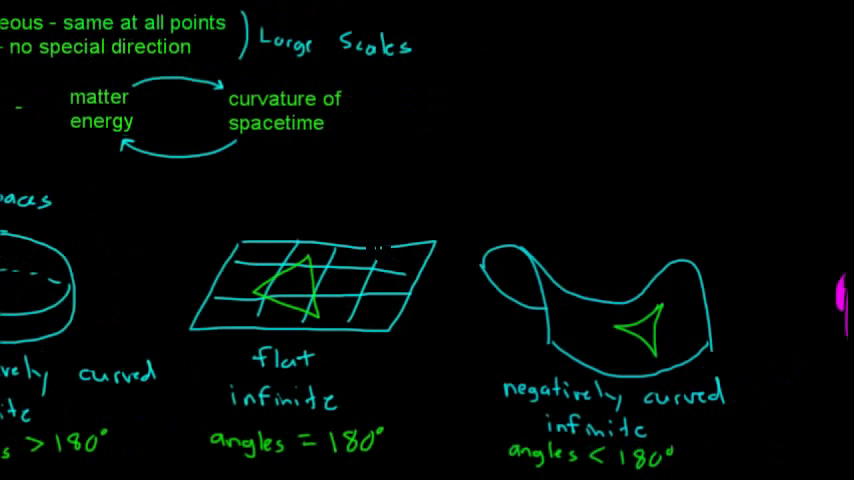 eous - same at all points
- no special direction
Large Scales
-
matter
energy
curvature of
spacetime
paces
vely curved
ite
s > 180°
flat
infinite
angles = 180°
negatively curved
infinite
angles < 180°